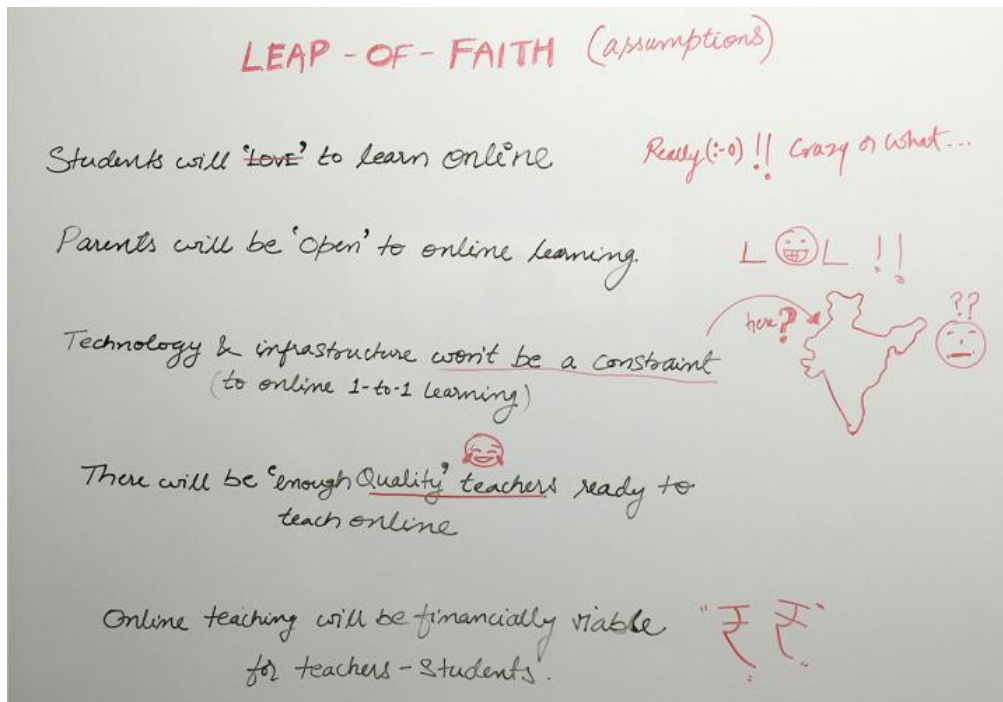 LEAP-OF-FAITH (assumptions)
Students will 'LOVE' to learn online Really (:-o) !! Crazy or what...
Parents will be 'open' to online learning. LOL !!
??
here?
Technology & infrastructure won't be a constraint
(to online 1-to-1 learning)
There will be 'enough Quality' teachers ready to
teach online
Online teaching will be financially viable "₹ ₹"
for teachers-students.